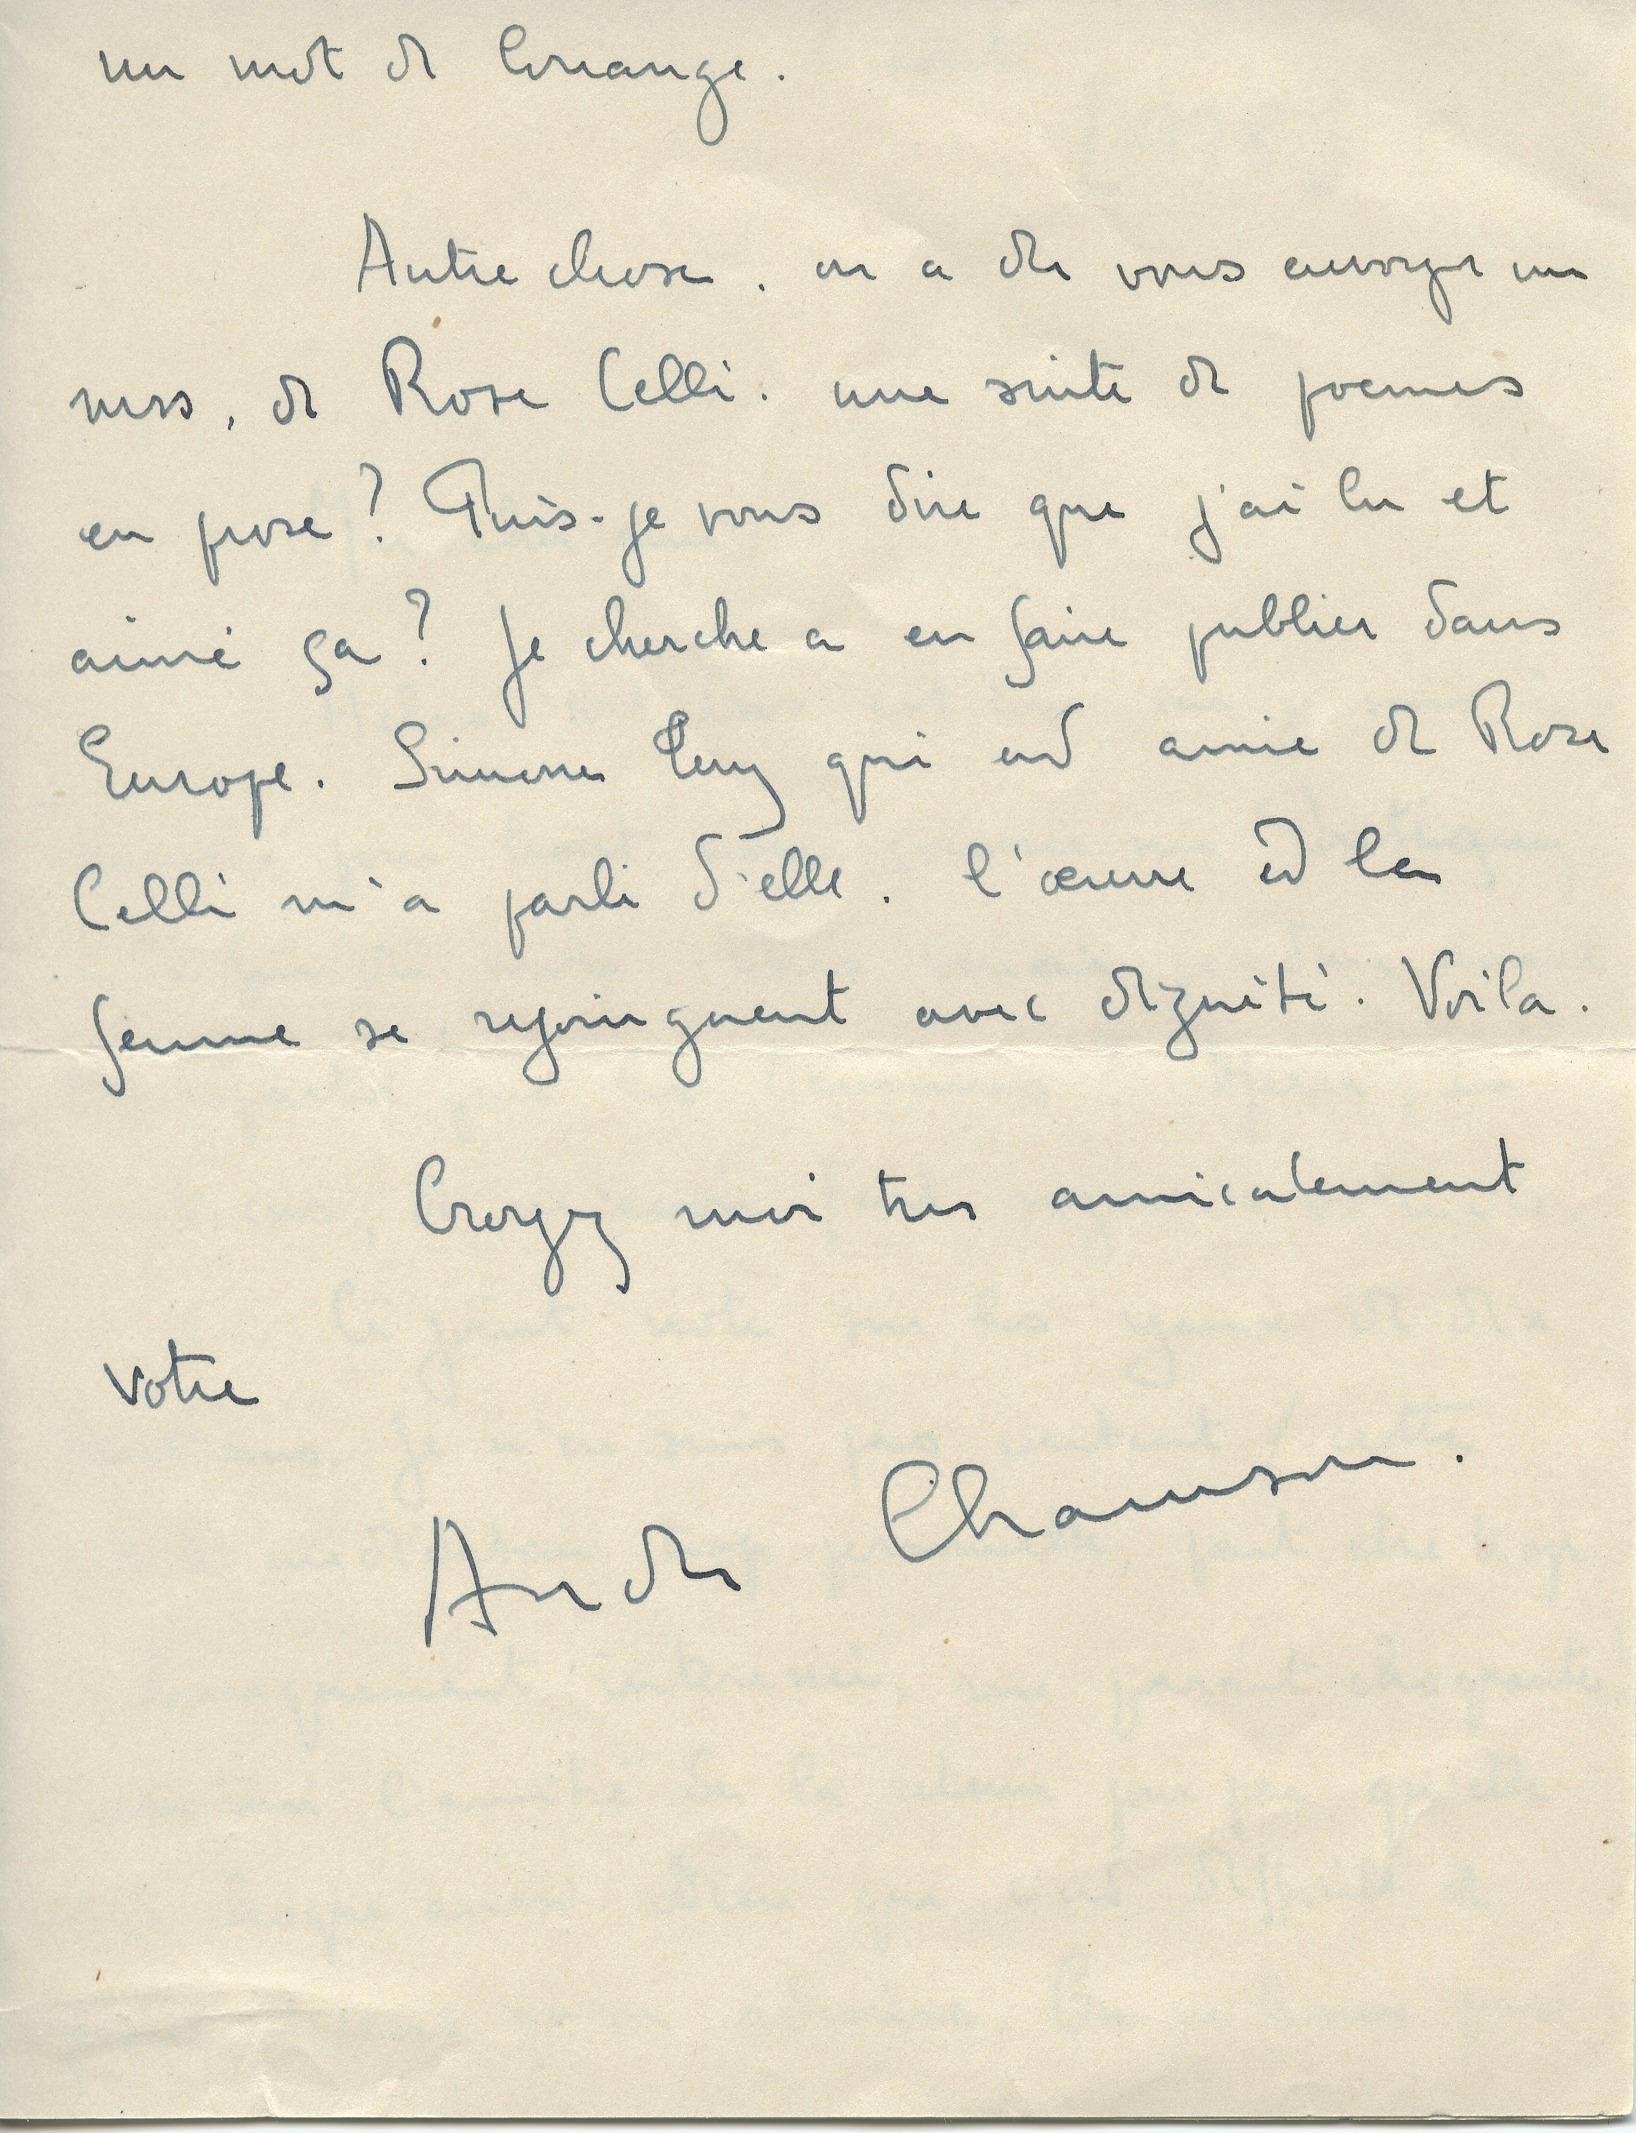 un mot de louange.
Autre chose. on a du vous envoyer un
mss. de Rose Celli. une suite de poemes
en prose ? Puis-je vous dire que j'ai lu et
aimé ça ? Je cherche a en faire publier dans
Europe. Simone qui est amie de Rose
Celli m'a parlé d'elle. l'œuvre et la
femme se rejoignent avec dignité. Voila.
Croyez moi tres amicalement
votre
André Chamson.